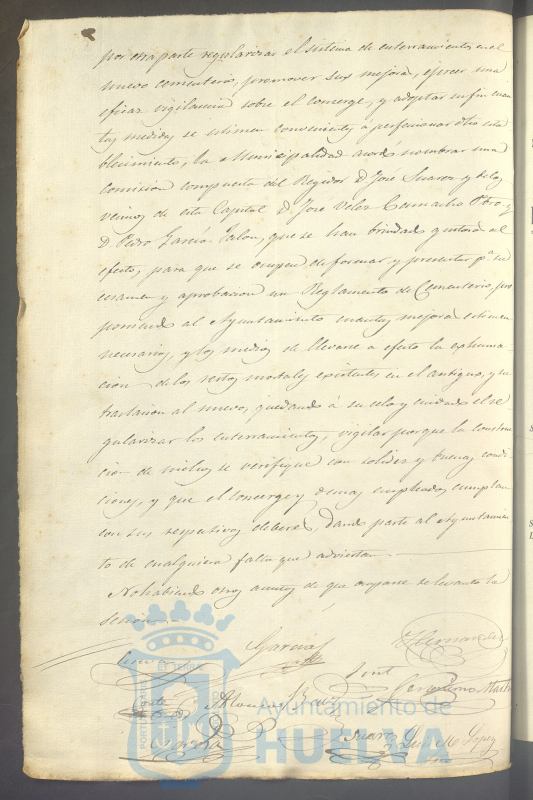 por otra parte regularizar el sistema de enterramientos en el
nuevo cementerio, promover sus mejoras, ejercer una
eficaz vigilancia sobre el conserge, y adoptar en fin cuan
tas medidas se estimen convenientes á perfeccionar dho esta
blecimiento, la Municipalidad acordó nombrar una
comision compuesta del Regidor D. José Suarez y de los
vecinos de esta Capital D. José Velez Camacho Pbro. y
D. Pedro García Jalon, que se han brindado gustosos al
efecto, para que se ocupen de formar y presentar pa. su
ecsamen y aprobacion un Reglamento de Cementerio, pro
poniendo al Ayuntamiento cuantas mejoras estimen
necesarias, y los medios de llevarse a efecto la exhuma-
cion de los restos mortales existentes en el antiguo, y su
traslacion al nuevo, quedando á su celo y cuidado el re
gularizar los enterramientos, vigilar porque la construc
cion de nichos se verifique con solidez y buenas condi
ciones, y que el concerge y demas empleados cumplan
con sus respectivos deberes, dando parte al Ayuntamien
to de cualquiera falta que adviertan.
No habiendo otros asuntos de que ocuparse se levantó la
sesion.
García Hernandez
Suarez Luis M. Lopez
Ayuntamiento de
HUELVA